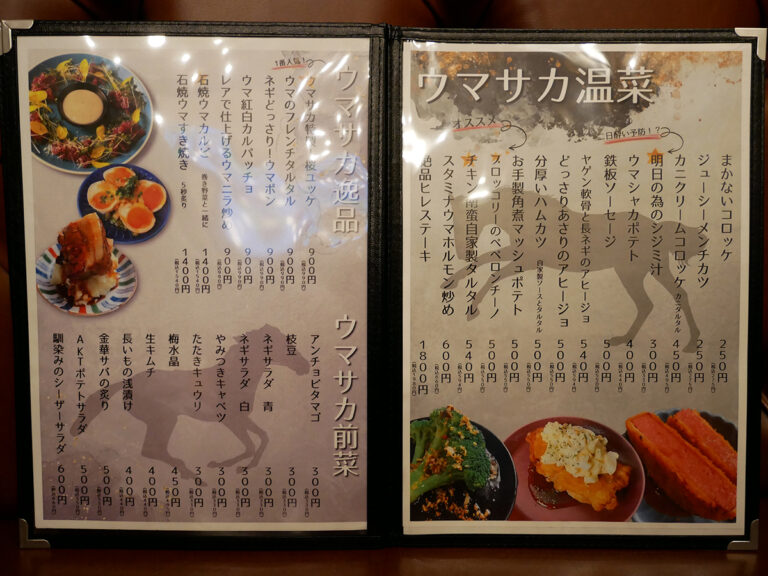 ウマサカ温菜
オススメ
二日酔い予防！？
まかないコロッケ 250円
ジューシーメンチカツ 250円
カニクリームコロッケ カニタルタル 450円
明日の為のシジミ汁 300円
ウマシャカポテト 400円
鉄板ソーセージ 500円
ヤゲン軟骨と長ネギのアヒージョ 540円
どっさりあさりのアヒージョ 500円
分厚いハムカツ 自家製ソースとタルタル 500円
お手製角煮マッシュポテト 500円
ブロッコリーのペペロンチーノ 540円
チキン南蛮自家製タルタル 540円
スタミナウマホルモン炒め 600円
絶品ヒレステーキ 1800円
ウマサカ逸品
1番人気！
ウマサカ 桜ユッケ 900円
ウマのフレンチタルタル 900円
ネギどっさり！ウマポン 900円
ウマ紅白カルパッチョ 900円
レアで仕上げるウマニラ炒め 900円
石焼ウマカルビ 巻き野菜と一緒に 1440円
石焼ウマすき焼き 5秒炙り 1400円
ウマサカ前菜
アンチョビタマゴ 300円
枝豆 300円
ネギサラダ 青 300円
ネギサラダ 白 300円
やみつきキャベツ 300円
たたきキュウリ 300円
梅水晶 450円
生キムチ 400円
長いもの浅漬け 400円
金華サバの炙り 500円
AKTポテトサラダ 500円
馴染みのシーザーサラダ 600円